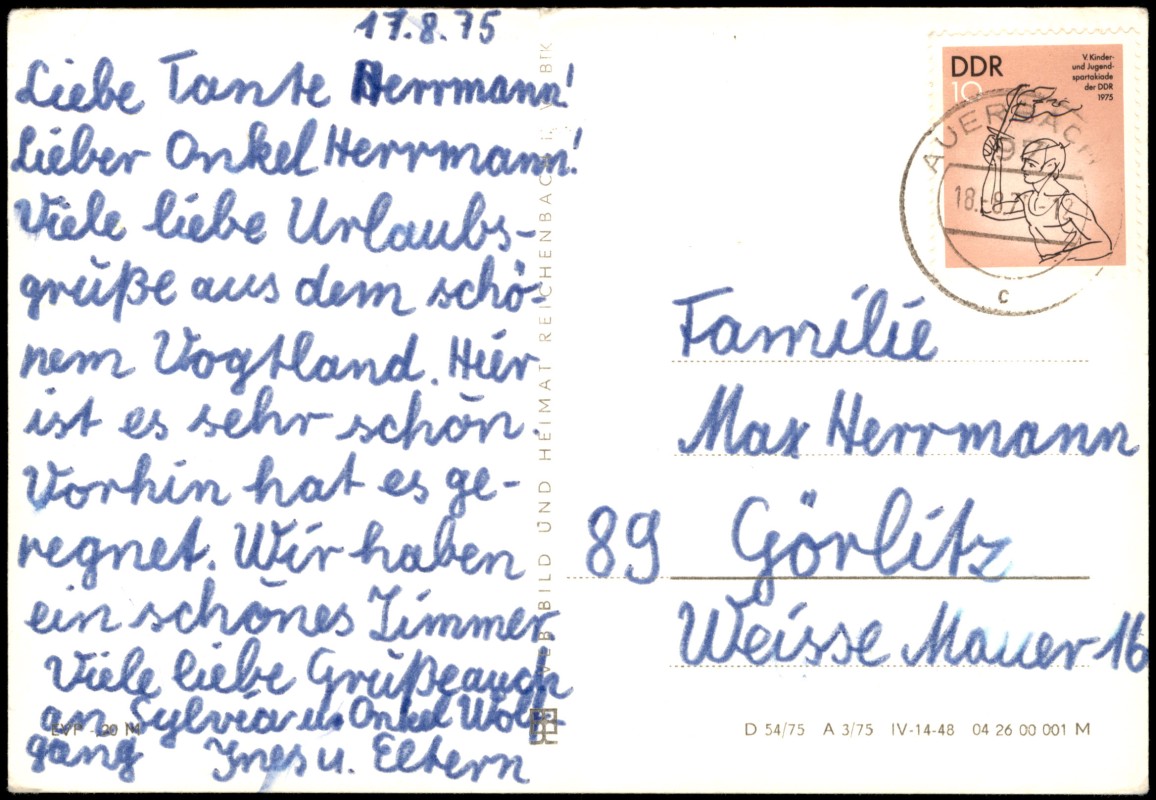 17.8.75
Liebe Tante Herrmann!
Lieber Onkel Herrmann!
Viele liebe Urlaubs-
grüße aus dem schö-
nem Vogtland. Hier
ist es sehr schön.
Vorhin hat es ge-
regnet. Wir haben
ein schönes Zimmer
Viele liebe Grüße auch
an Sylvia u. Onkel Wolf-
gang Ines u. Eltern
EVP - 20 M
VEB BILD UND HEIMAT REICHENBACH
DDR
10
V. Kinder-
und Jugend-
spartakiade
der DDR
1975
AUERBACH
18.-8.7
c
Familie
Max Herrmann
89 Görlitz
Weisse Mauer 16
D 54/75 A 3/75 IV-14-48 04 26 00 001 M